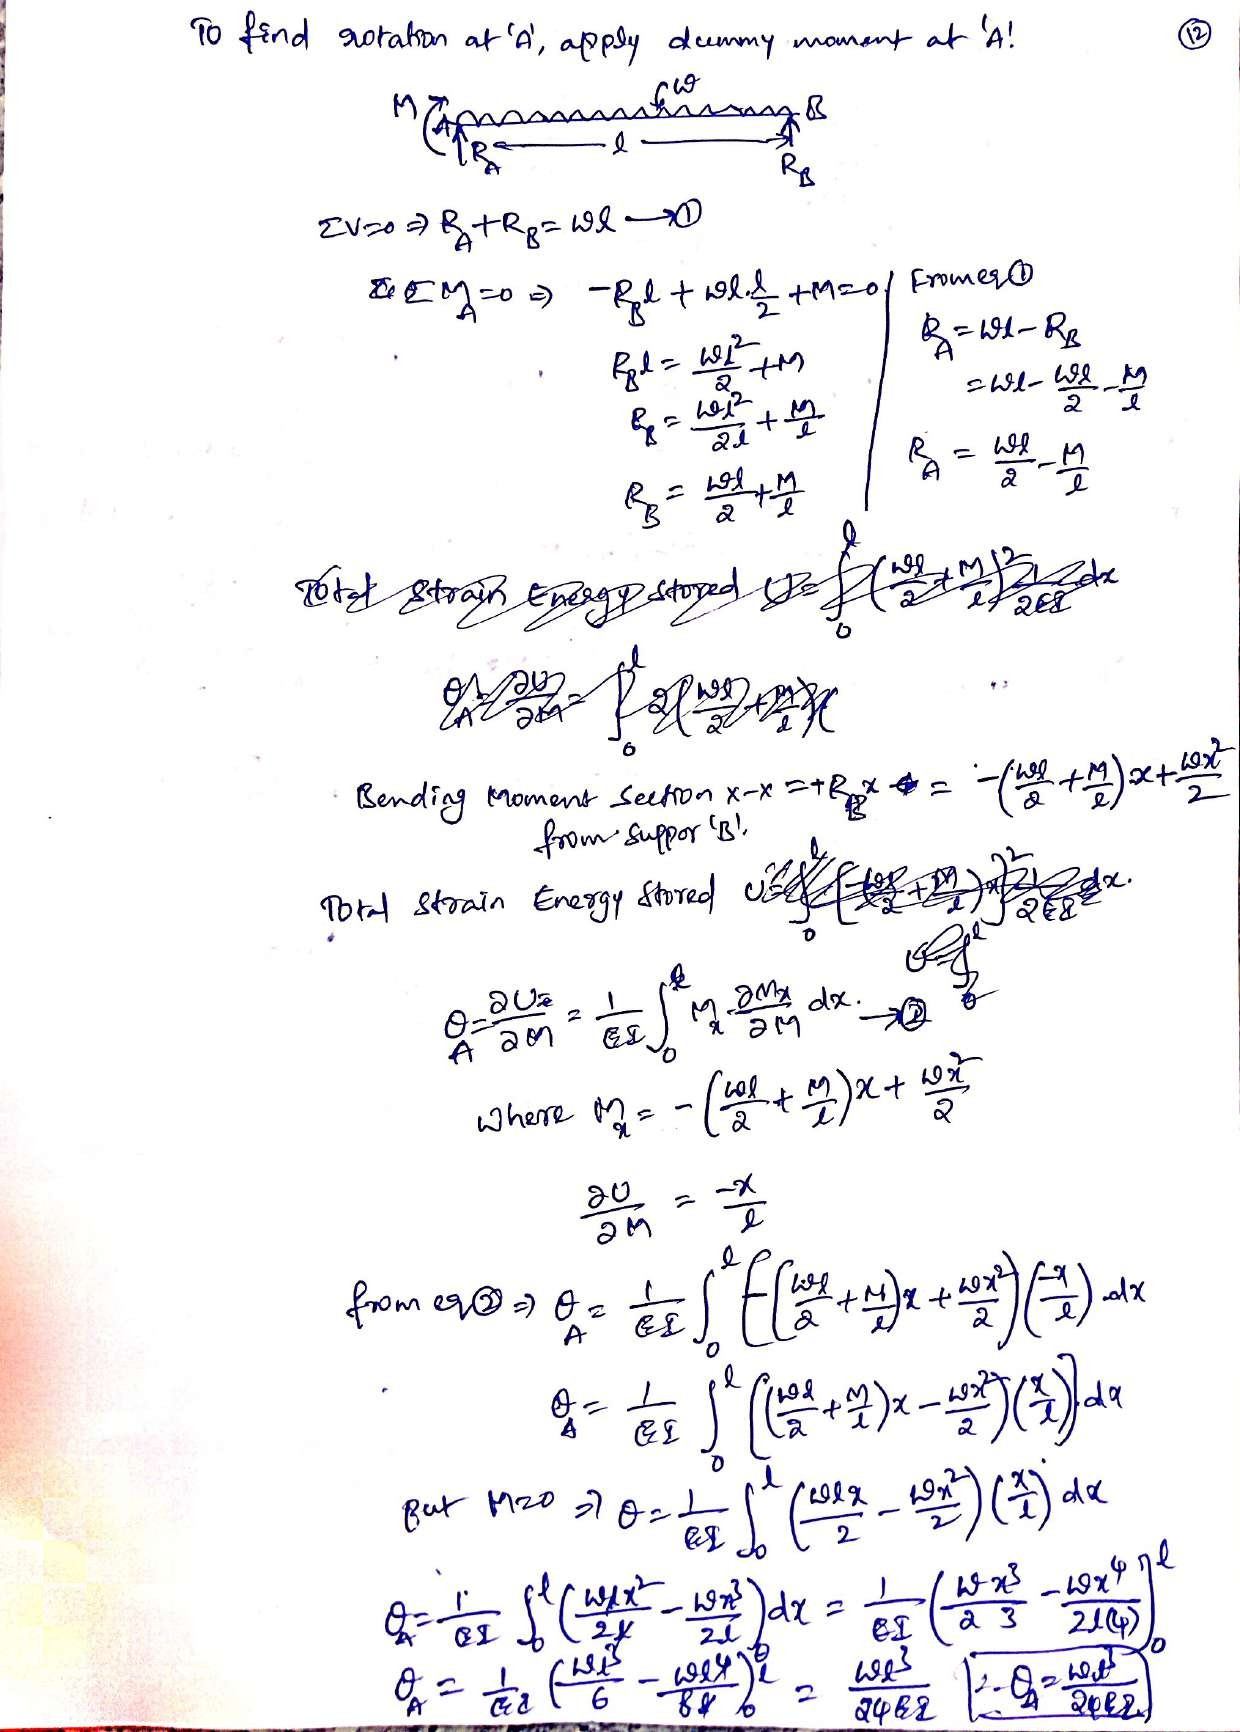 To find rotation at 'A', apply dummy moment at 'A'.
12
M A w B
R_A l R_B
ΣV=0 ⇒ R_A + R_B = wl → ①
ΣM_A = 0 ⇒ -R_B l + wl·l/2 + M = 0
R_B l = wl²/2 + M
R_B = wl²/2l + M/l
R_B = wl/2 + M/l
From eq ①
R_A = wl - R_B
= wl - wl/2 - M/l
R_A = wl/2 - M/l
Total Strain Energy stored U = ∫₀ˡ (wl/2 + M/l)² 1/2EI dx
θ_A = ∂U/∂M = ∫₀ˡ 2(wl/2 + M/l)(
Bending Moment Section x-x = +R_B x = -(wl/2 + M/l)x + wx²/2
from suppor 'B'.
Total Strain Energy stored U = ∫₀ˡ [-(wl/2 + M/l)x]² 1/2EI dx.
θ_A = ∂U/∂M = 1/EI ∫₀ˡ M_x ∂M_x/∂M dx. → ②
where M_x = -(wl/2 + M/l)x + wx²/2
∂U/∂M = -x/l
from eq ② ⇒ θ_A = 1/EI ∫₀ˡ [-(wl/2 + M/l)x + wx²/2)(-x/l) dx
θ_A = 1/EI ∫₀ˡ [((wl/2 + M/l)x - wx²/2)(x/l)] dx
But M=0 ⇒ θ = 1/EI ∫₀ˡ (wlx/2 - wx²/2)(x/l) dx
θ_A = 1/EI ∫₀ˡ (wlx²/2l - wx³/2l) dx = 1/EI (w x³/2 3 - wx⁴/2l(4)]₀ˡ
θ_A = 1/EI (wl³/6 - wl⁴/8l)₀ˡ = wl³/24EI ∴ θ_A = wl³/24EI